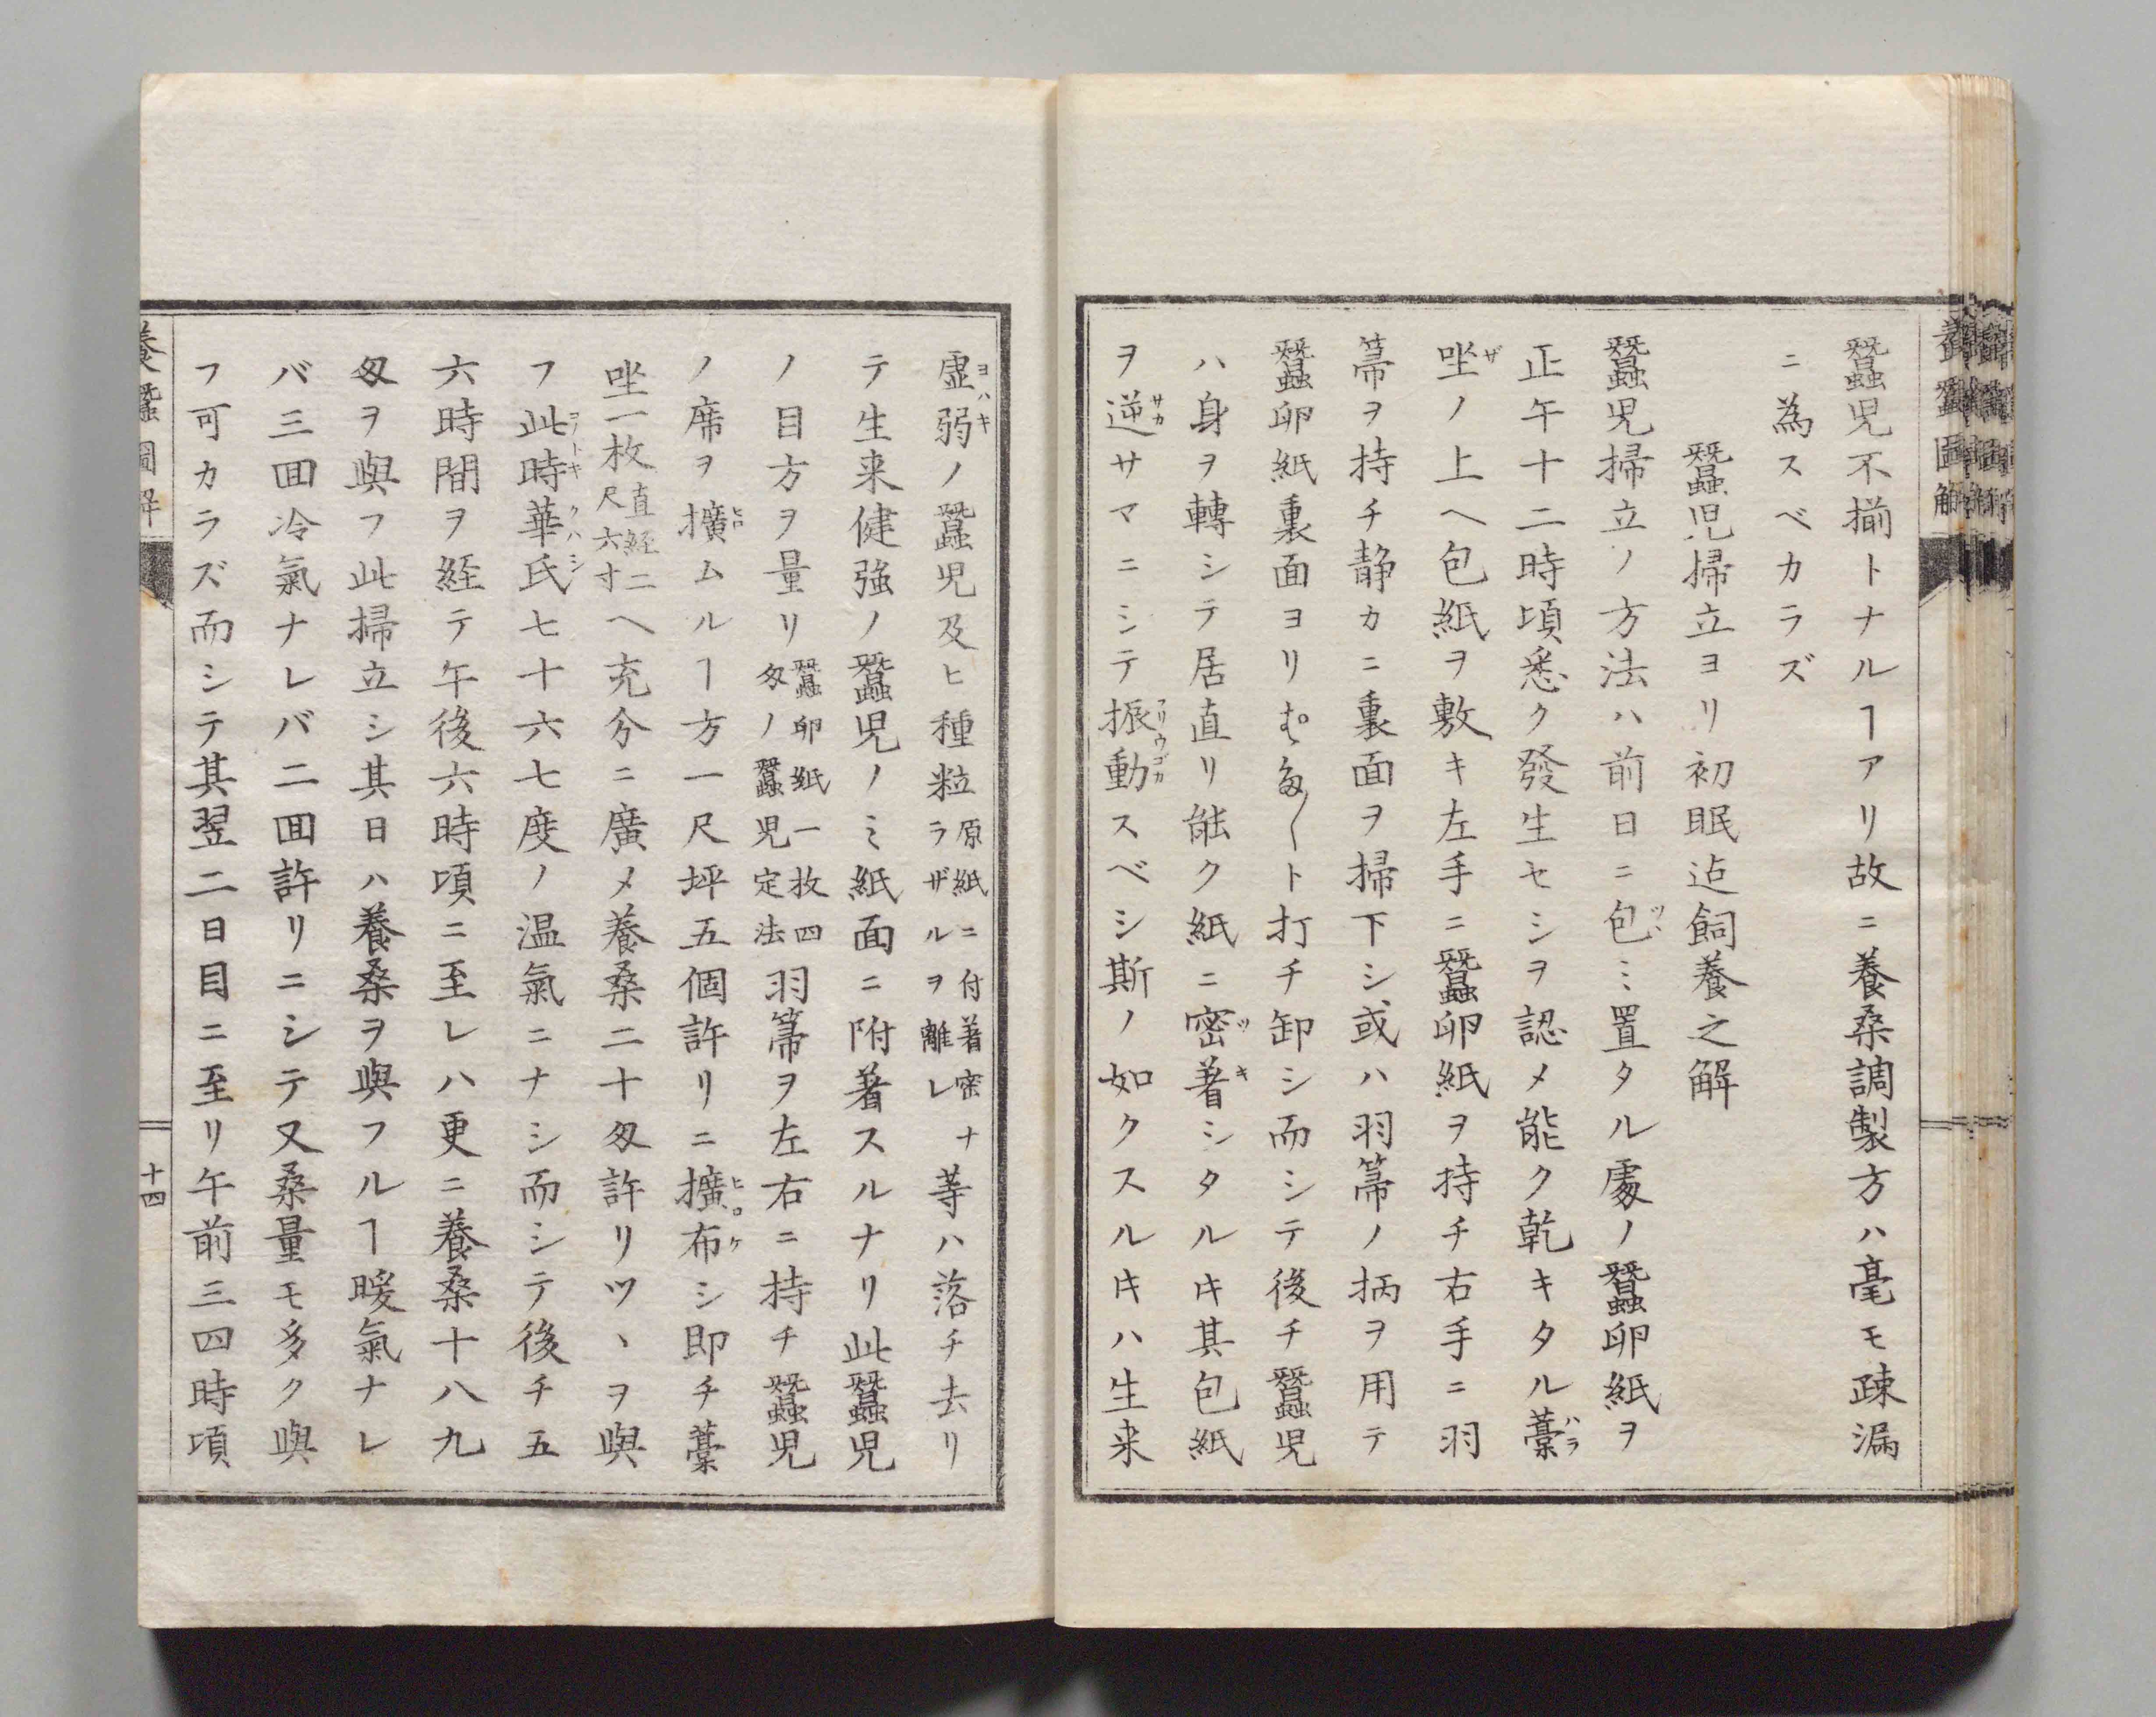 養蠶圖解
蠶児不揃トナルヿアリ故ニ養桑調製方ハ毫モ疎漏
ニ為スベカラズ
蠶児掃立ヨリ初眠迠飼養之解
蠶児掃立ノ方法ハ前日ニ包ミ置タル處ノ蠶卵紙ヲ
正午十二時頃悉ク發生セシヲ認メ能ク乾キタル藁
坐ノ上ヘ包紙ヲ敷キ左手ニ蠶卵紙ヲ持チ右手ニ羽
箒ヲ持チ静カニ裏面ヲ掃下シ或ハ羽箒ノ柄ヲ用テ
蠶卵紙裏面ヨリむら〱ト打チ卸シ而シテ後チ蠶児
ハ身ヲ轉シテ居直リ能ク紙ニ密著シタルキ其包紙
ヲ逆サマニシテ振動スベシ斯ノ如クスルキハ生来
虚弱ノ蠶児及ヒ種粒原紙ニ付著密ナラザルヲ離レ等ハ落チ去リ
テ生来健強ノ蠶児ノミ紙面ニ附著スルナリ此蠶児
ノ目方ヲ量リ蠶卵紙一枚四匁ノ蠶児定法羽箒ヲ左右ニ持チ蠶児
ノ席ヲ擴ムルヿ方一尺坪五個許リニ擴布シ即チ藁
坐一枚直経二尺六寸ヘ充分ニ廣メ養桑二十匁許リツヽヲ與
フ此時華氏七十六七度ノ温氣ニナシ而シテ後チ五
六時間ヲ経テ午後六時頃ニ至レハ更ニ養桑十八九
匁ヲ與フ此掃立シ其日ハ養桑ヲ與フルヿ暖氣ナレ
バ三回冷氣ナレバ二回許リニシテ又桑量モ多ク與
フ可カラズ而シテ其翌二日目ニ至リ午前三四時頃
養蠶圖解
十四